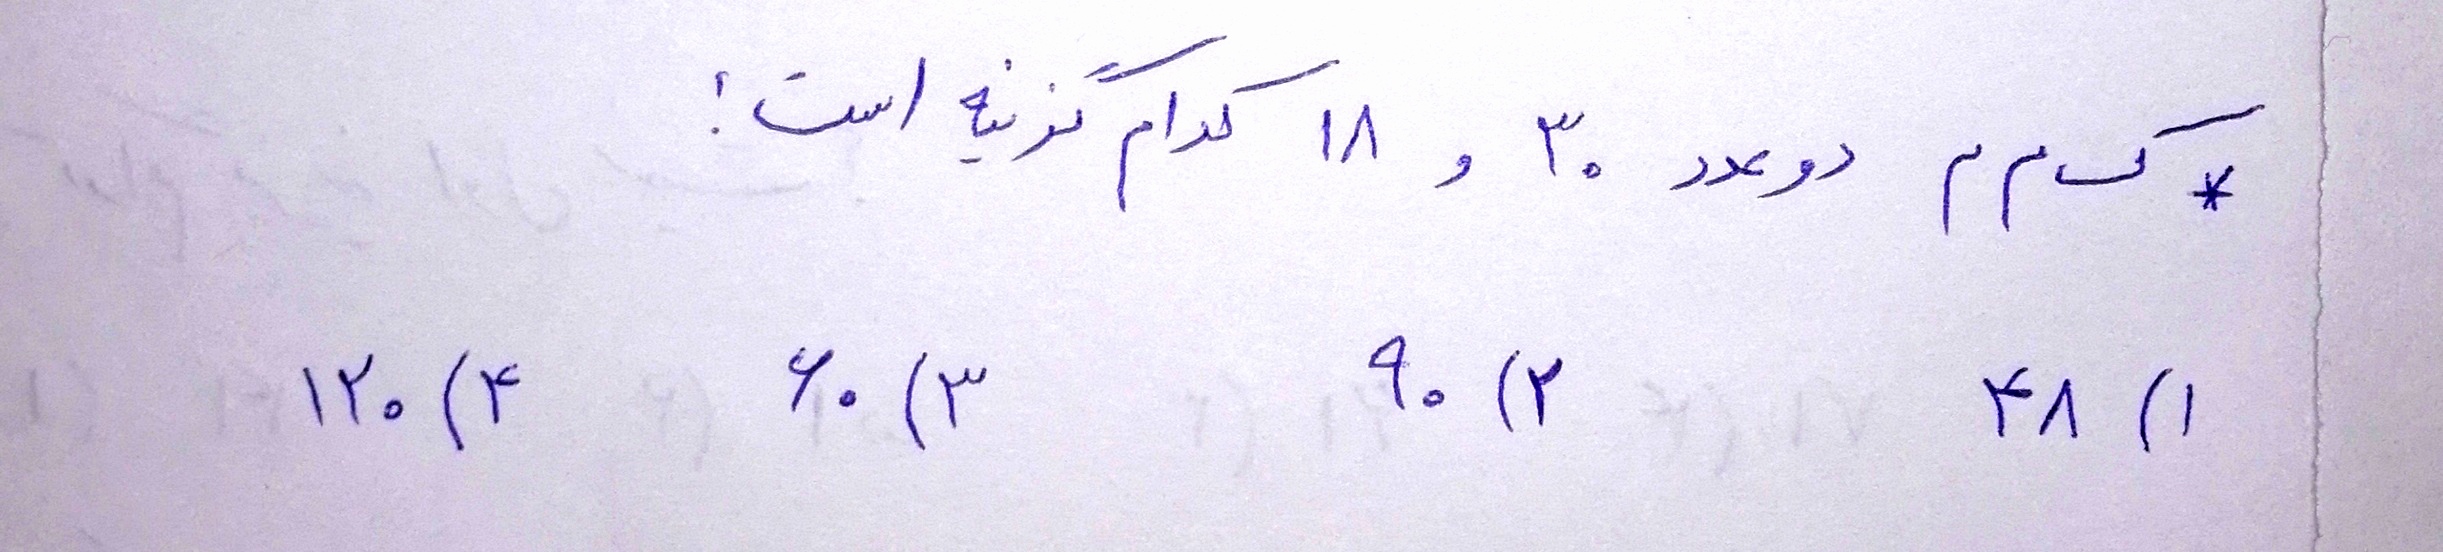 * ک م م دو عدد ۳۰ و ۱۸ کدام گزینه است؟
۱) ۴۸ ۲) ۹۰ ۳) ۶۰ ۴) ۱۲۰